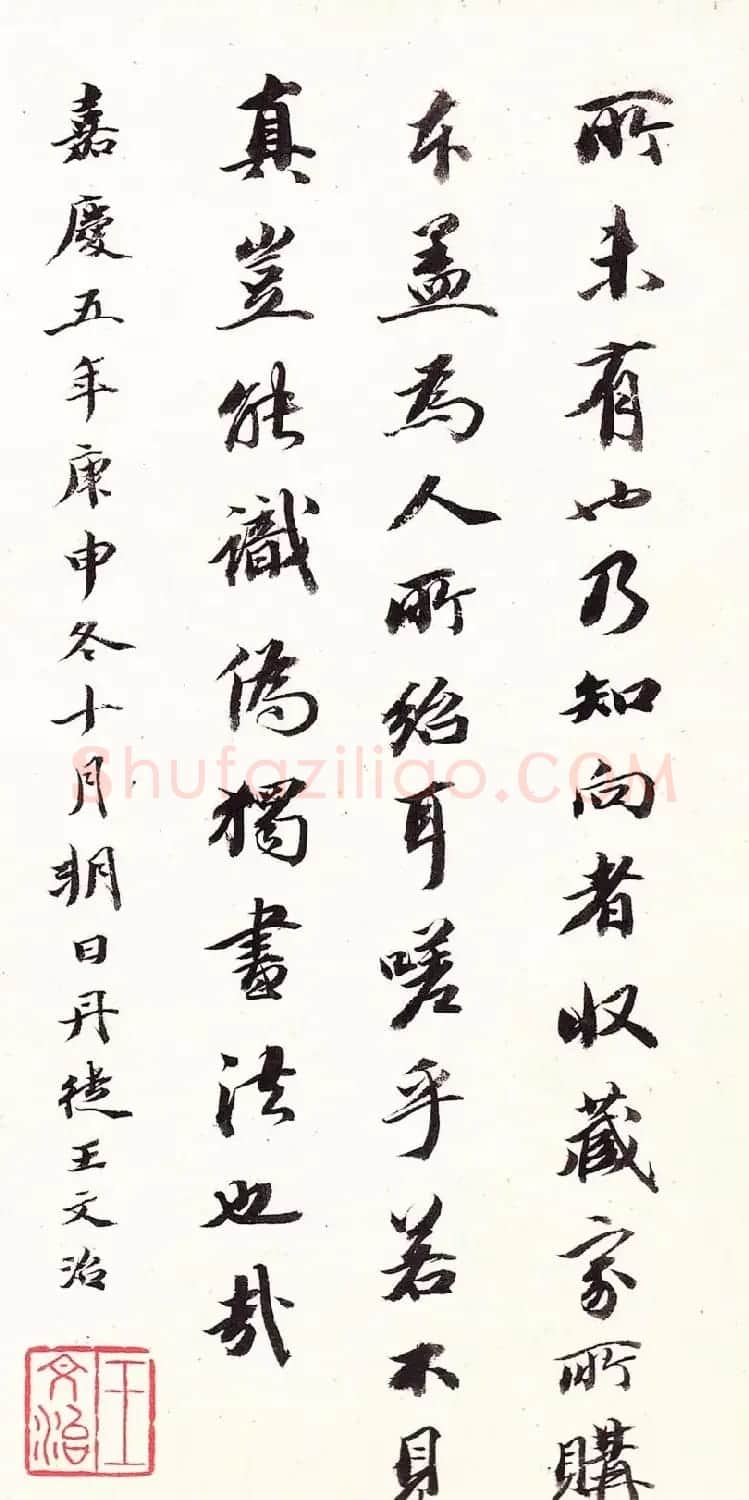 所未有也乃知向者收藏家所購
本盖為人所紿耳嗟乎若不見
真豈能識偽獨畫法也哉
嘉慶五年庚申冬十月朔日丹徒王文治
王文治
Shufaziliao.COM